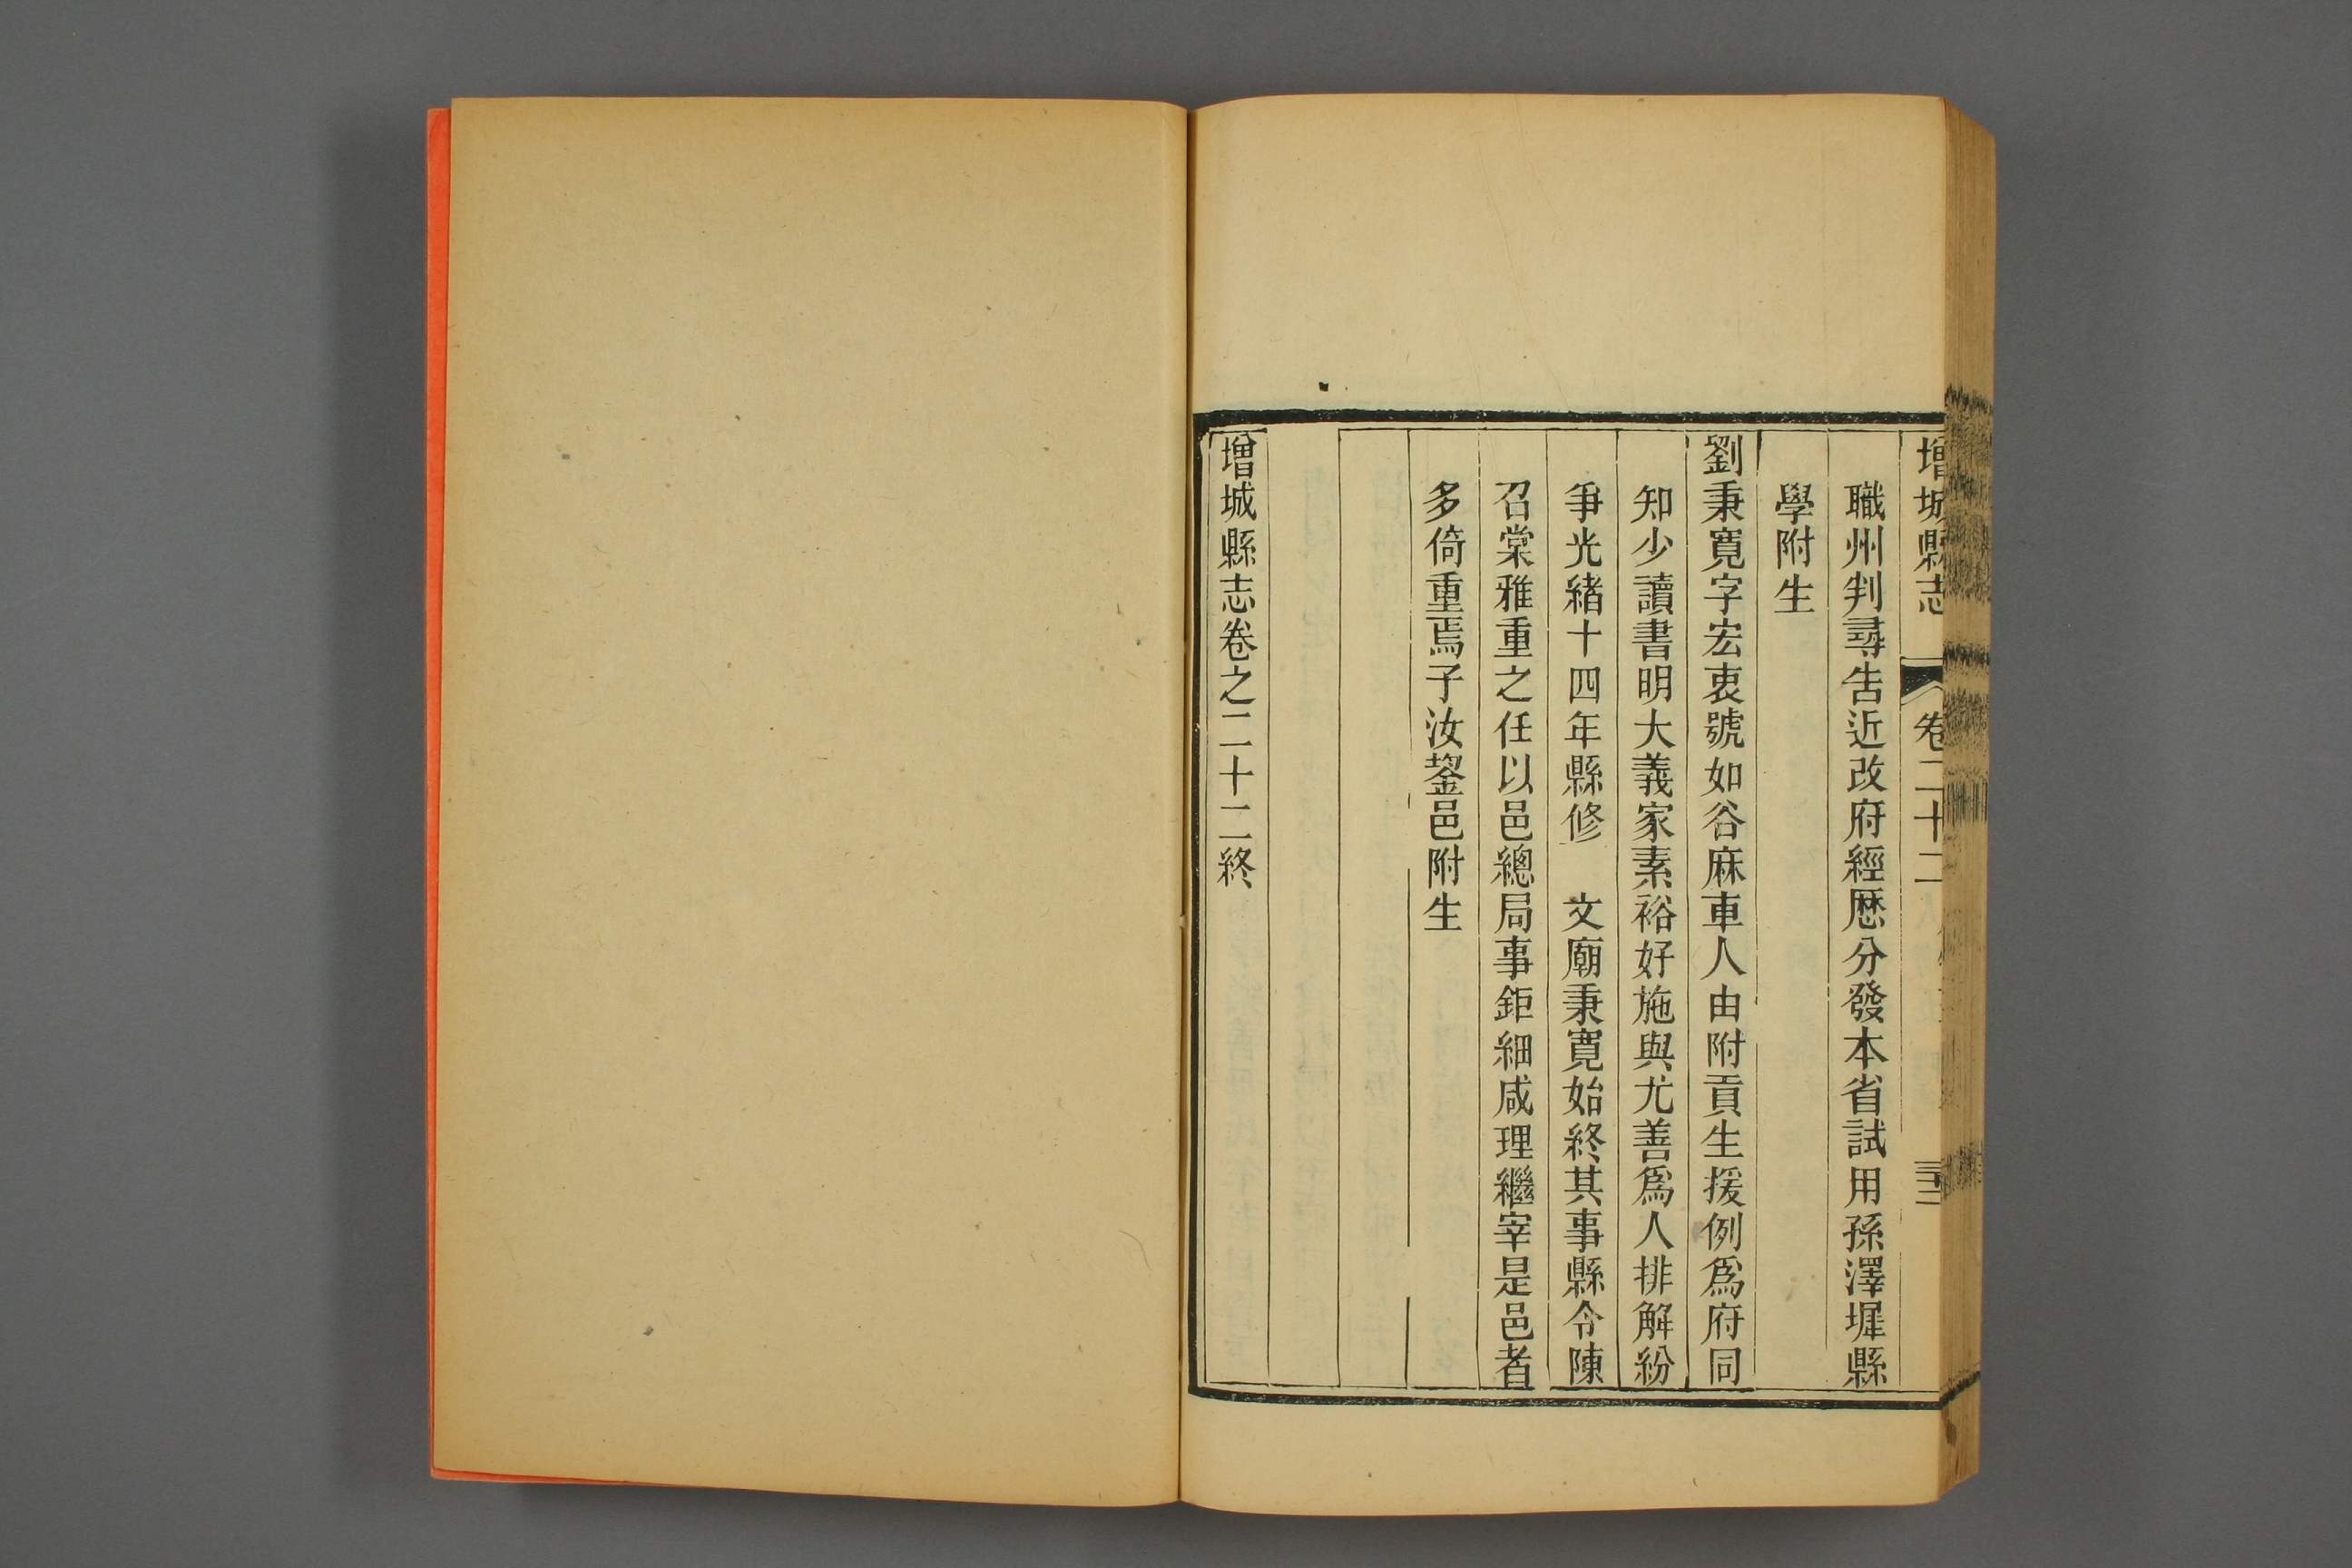 增城縣志 卷二十二 三十二
職州判尋告近改府經歷分發本省試用孫澤墀縣
學附生
劉秉寬字宏衷號如谷麻車人由附貢生援例爲府同
知少讀書明大義家素裕好施與尤善爲人排解紛
爭光緒十四年縣修 文廟秉寬始終其事縣令陳
召棠雅重之任以邑總局事鉅細咸理繼宰是邑者
多倚重焉子汝鋆邑附生
增城縣志卷之二十二終